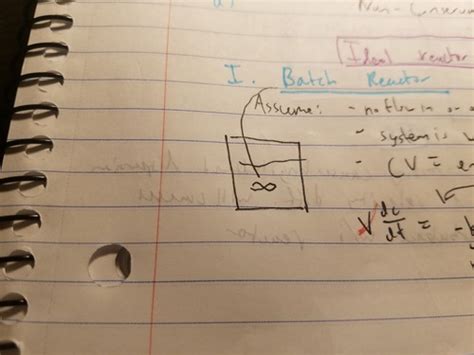 Non-Conserva
Ideal reactor
I. Batch Reactor
Assume: - no flow in or
- system is
- CV =
V dc/dt = -k